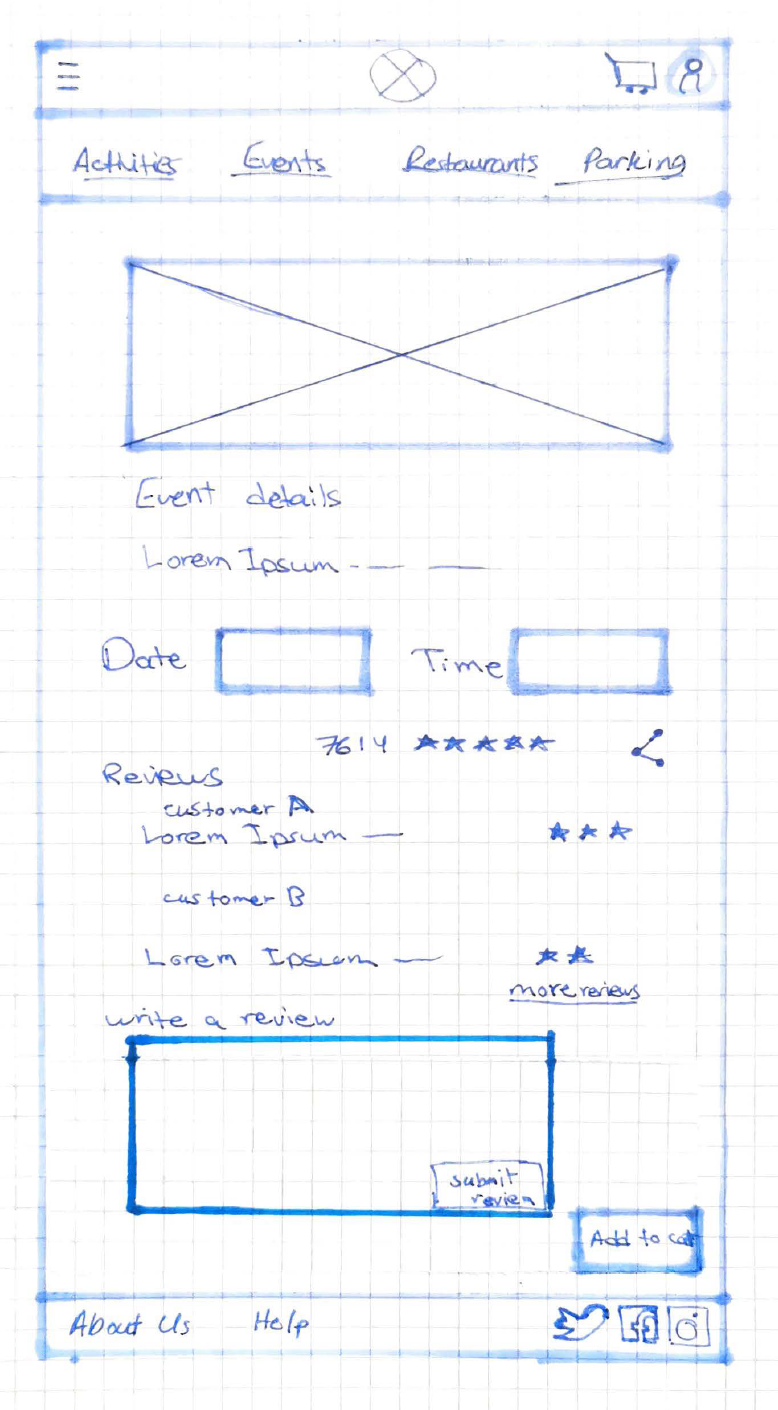 Activities Events Restaurants Parking
Event details
Lorem Ipsum - — —
Date Time
7614 ★★★★★
Reviews
customer A
Lorem Ipsum — ★★★
customer B
Lorem Ipsum — ★★
more reviews
write a review
submit
review
Add to cart
About Us Help